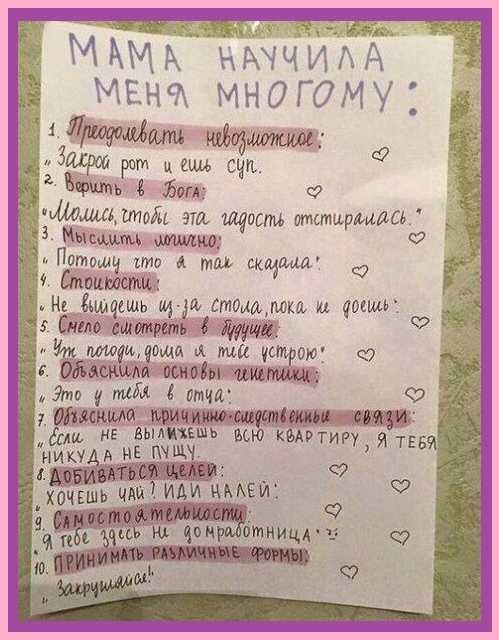 МАМА НАУЧИЛА
МЕНЯ МНОГОМУ:
1. Преодолевать невозможное:
„Закрой рот и ешь суп.
2. Верить в Бога:
"Молись, чтобы эта гадость отстиралась."
3. Мыслить логично:
„Потому что я так сказала"
4. Стойкости:
„Не выйдешь из-за стола, пока не доешь".
5. Смело смотреть в будущее:
„Уж погоди, дома я тебе устрою"
6. Объяснила основы генетики:
„Это у тебя в отца"
7. Объяснила причинно-следственные связи:
„Если НЕ ВЫЛИЖЕШЬ ВСЮ КВАРТИРУ, Я ТЕБЯ
НИКУДА НЕ ПУЩУ.
8. ДОБИВАТЬСЯ ЦЕЛЕЙ:
„ХОЧЕШЬ ЧАЙ? ИДИ НАЛЕЙ"
9. Самостоятельности:
"Я тебе здесь не домработница"
10. ПРИНИМАТЬ РАЗЛИЧНЫЕ ФОРМЫ:
„Закругляйся!"